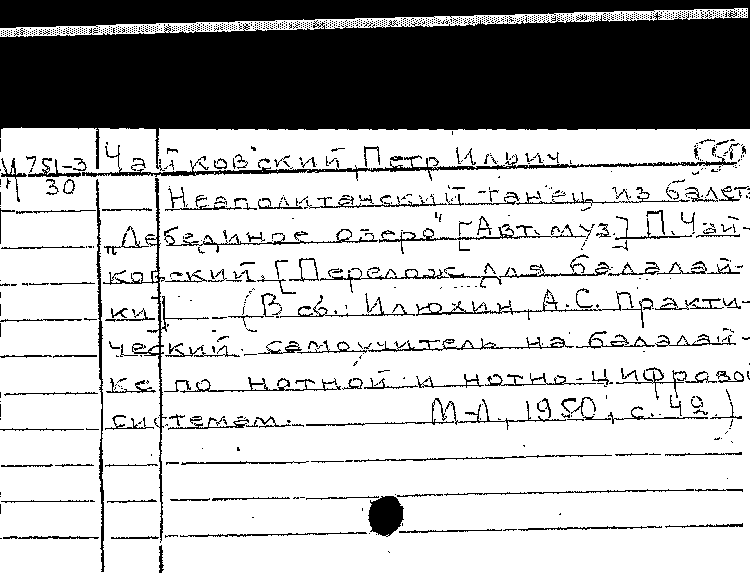 М 751-3 Чайковский, Петр Ильич. (50)
30
Неаполитанский танец из балета
„Лебединое озеро" [Авт. муз.] П. Чай-
ковский. [Перелож для балалай-
ки] (В сб.: Илюхин, А.С. Практи-
ческий самоучитель на балалай-
ке по нотной и нотно-цифровой
системам. М-Л, 1950, с. 42.)